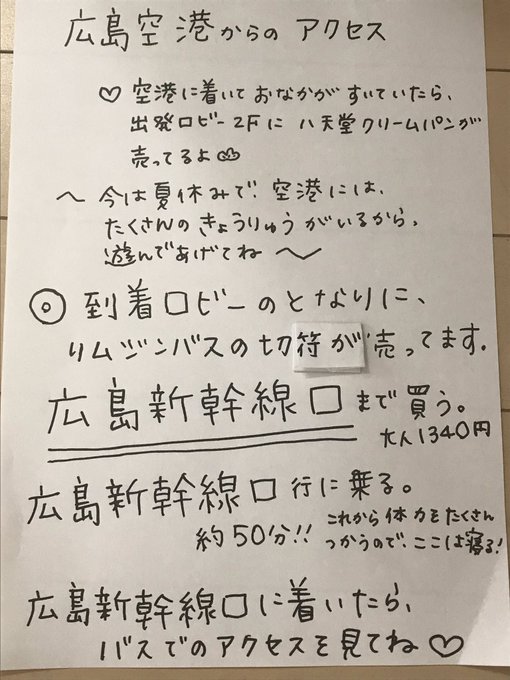 広島空港からの アクセス
♡ 空港に着いて おなかが すいていたら、
出発ロビー2Fに 八天堂クリームパンが
売ってるよ
〜 今は夏休みで、空港には、
たくさんの きょうりゅう がいるから、
遊んであげてね 〜
◎ 到着ロビーのとなりに、
リムジンバスの切符が売ってます。
広島新幹線口まで買う。
大人1340円
広島新幹線口行に乗る。
約50分!! これから体力をたくさん
つかうので、ここは寝る!
広島新幹線口に着いたら、
バスでのアクセスを見てね♡